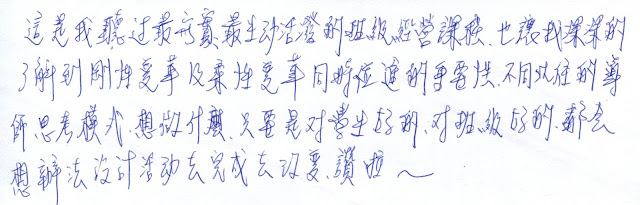 這是我聽过最充實、最生动活潑的班級經營課程、也讓我深深的
了解到剛性变革及柔性变革同時並進的重要性、不同以往的導
師思考模式、想做什麼、只要是对學生好的、对班級好的、都会
想辦法設计活动去完成去改变、讚啦～